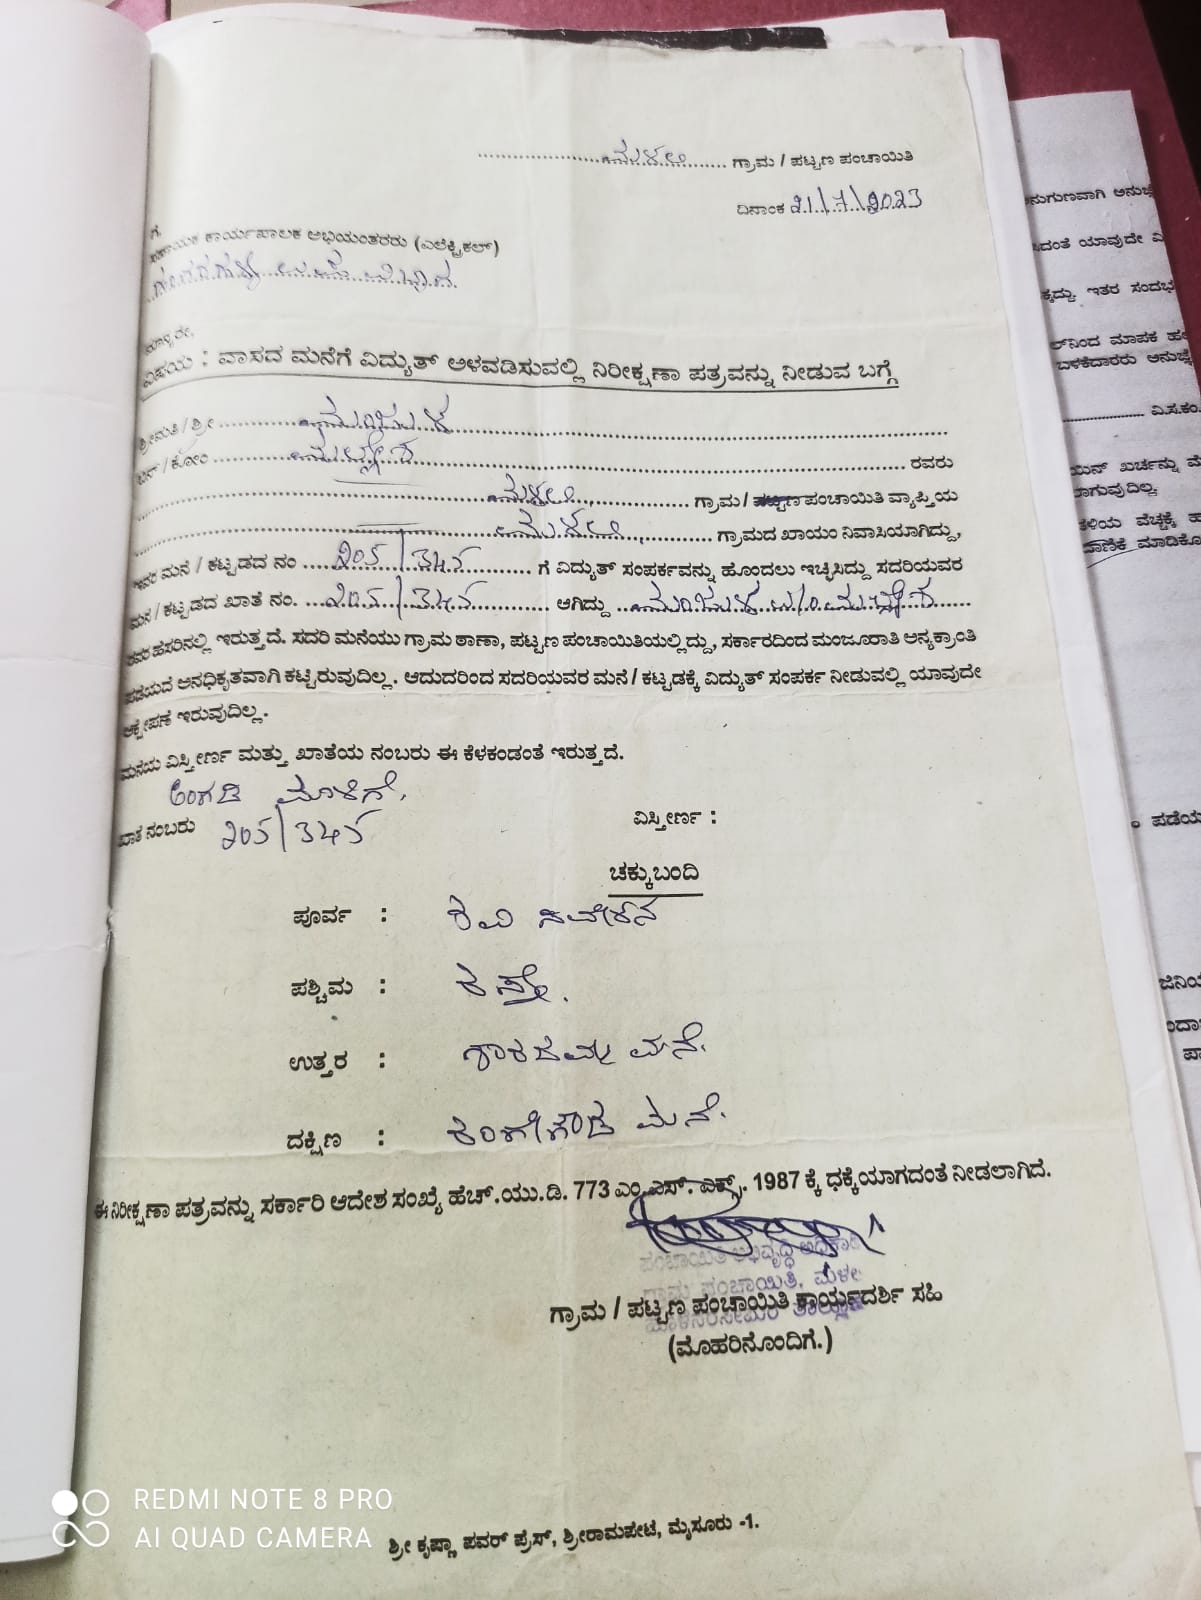 ಗ್ರಾಮ / ಪಟ್ಟಣ ಪಂಚಾಯಿತಿ
ದಿನಾಂಕ 21/7/2023
ಗೆ,
ಸಹಾಯಕ ಕಾರ್ಯಪಾಲಕ ಅಭಿಯಂತರರು (ಎಲೆಕ್ಟ್ರಿಕಲ್)
ಮಾನ್ಯರೇ,
ವಿಷಯ : ವಾಸದ ಮನೆಗೆ ವಿದ್ಯುತ್ ಅಳವಡಿಸುವಲ್ಲಿ ನಿರೀಕ್ಷಣಾ ಪತ್ರವನ್ನು ನೀಡುವ ಬಗ್ಗೆ
ಶ್ರೀಮತಿ / ಶ್ರೀ ಮಂಜುಳ
ಬಿನ್ / ಕೋಂ ರವರು
ಗ್ರಾಮ / ಪಟ್ಟಣ ಪಂಚಾಯಿತಿ ವ್ಯಾಪ್ತಿಯ
ಗ್ರಾಮದ ಖಾಯಂ ನಿವಾಸಿಯಾಗಿದ್ದು,
ಇವರ ಮನೆ / ಕಟ್ಟಡದ ನಂ 205/345 ಗೆ ವಿದ್ಯುತ್ ಸಂಪರ್ಕವನ್ನು ಹೊಂದಲು ಇಚ್ಛಿಸಿದ್ದು ಸದರಿಯವರ
ಮನೆ / ಕಟ್ಟಡದ ಖಾತೆ ನಂ. 205/345 ಆಗಿದ್ದು ಮಂಜುಳ
ರವರ ಹೆಸರಿನಲ್ಲಿ ಇರುತ್ತದೆ. ಸದರಿ ಮನೆಯು ಗ್ರಾಮ ಠಾಣಾ, ಪಟ್ಟಣ ಪಂಚಾಯಿತಿಯಲ್ಲಿದ್ದು, ಸರ್ಕಾರದಿಂದ ಮಂಜೂರಾತಿ ಅನ್ಯಕ್ರಾಂತಿ
ಪಡೆಯದೆ ಅನಧಿಕೃತವಾಗಿ ಕಟ್ಟಿರುವುದಿಲ್ಲ. ಆದುದರಿಂದ ಸದರಿಯವರ ಮನೆ / ಕಟ್ಟಡಕ್ಕೆ ವಿದ್ಯುತ್ ಸಂಪರ್ಕ ನೀಡುವಲ್ಲಿ ಯಾವುದೇ
ಆಕ್ಷೇಪಣೆ ಇರುವುದಿಲ್ಲ.
ಮನೆಯ ವಿಸ್ತೀರ್ಣ ಮತ್ತು ಖಾತೆಯ ನಂಬರು ಈ ಕೆಳಕಂಡಂತೆ ಇರುತ್ತದೆ.
ಅಂಗಡಿ ಮಳಿಗೆ.
ಖಾತೆ ನಂಬರು 205/345 ವಿಸ್ತೀರ್ಣ :
ಚಕ್ಕುಬಂದಿ
ಪೂರ್ವ : ರವಿ ನಿವೇಶನ
ಪಶ್ಚಿಮ : ರಸ್ತೆ.
ಉತ್ತರ : ಶಾರದಮ್ಮ ಮನೆ.
ದಕ್ಷಿಣ : ರಂಗೇಗೌಡ ಮನೆ.
ಈ ನಿರೀಕ್ಷಣಾ ಪತ್ರವನ್ನು ಸರ್ಕಾರಿ ಆದೇಶ ಸಂಖ್ಯೆ ಹೆಚ್.ಯು.ಡಿ. 773 ಎಂ.ಎಸ್. ಎಕ್ಸ್. 1987 ಕ್ಕೆ ಧಕ್ಕೆಯಾಗದಂತೆ ನೀಡಲಾಗಿದೆ.
ಪಂಚಾಯಿತಿ ಅಭಿವೃದ್ಧಿ ಅಧಿಕಾರಿ
ಗ್ರಾಮ ಪಂಚಾಯಿತಿ,
ಗ್ರಾಮ / ಪಟ್ಟಣ ಪಂಚಾಯಿತಿ ಕಾರ್ಯದರ್ಶಿ ಸಹಿ
(ಮೊಹರಿನೊಂದಿಗೆ.)
ಶ್ರೀ ಕೃಷ್ಣಾ ಪವರ್ ಪ್ರೆಸ್, ಶ್ರೀರಾಮಪೇಟೆ, ಮೈಸೂರು -1.
REDMI NOTE 8 PRO
AI QUAD CAMERA